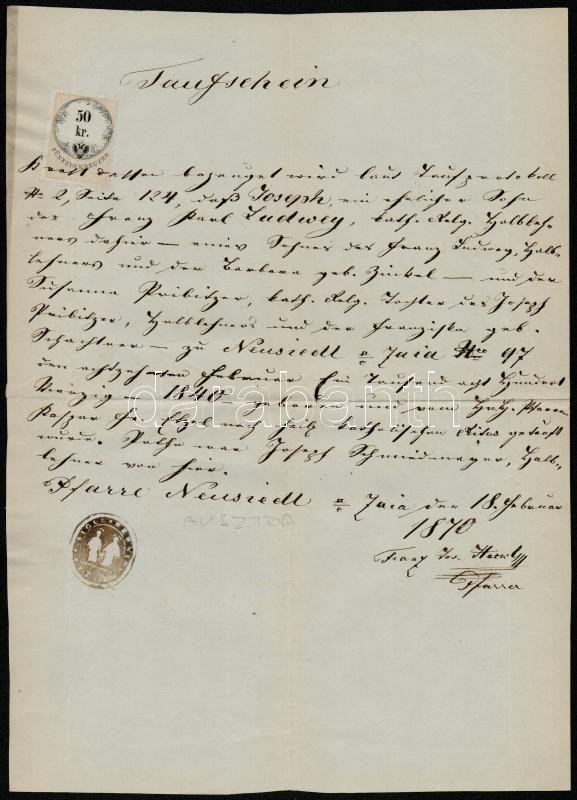 Taufschein
50
kr.
FÜNFZIG KREUZER
Kraft dessen bezeuget wird laut Taufprotokoll
№ 2, Seite 124, daß Joseph, ein ehelicher Sohn
des Franz Karl Ludwey, kath. Relg. Halbleh-
ners dahier – eines Sohnes des Franz Ludwey, Halb-
lehners und der Barbara geb. Zickel – und der
Susanna Pribitzer, kath. Relg. Tochter des Joseph
Pribitzer, Halblehners und der Franziska geb.
Schachtner – zu Neusiedl a/ Zaia Nro 97
den achtzehnten Februar Ein Tausend acht Hundert
Vierzig – 1840 – geboren und vom Pfarrer
Kaspar nach katholischen Ritus getauft
wurde. Pathe war Joseph Schmiedmayer, Halb-
lehner von hier.
Pfarre Neusiedl a/ Zaia den 18. Februar
1870
AUSZTRIA
Franz Jos.
Pfarrer
darabanth